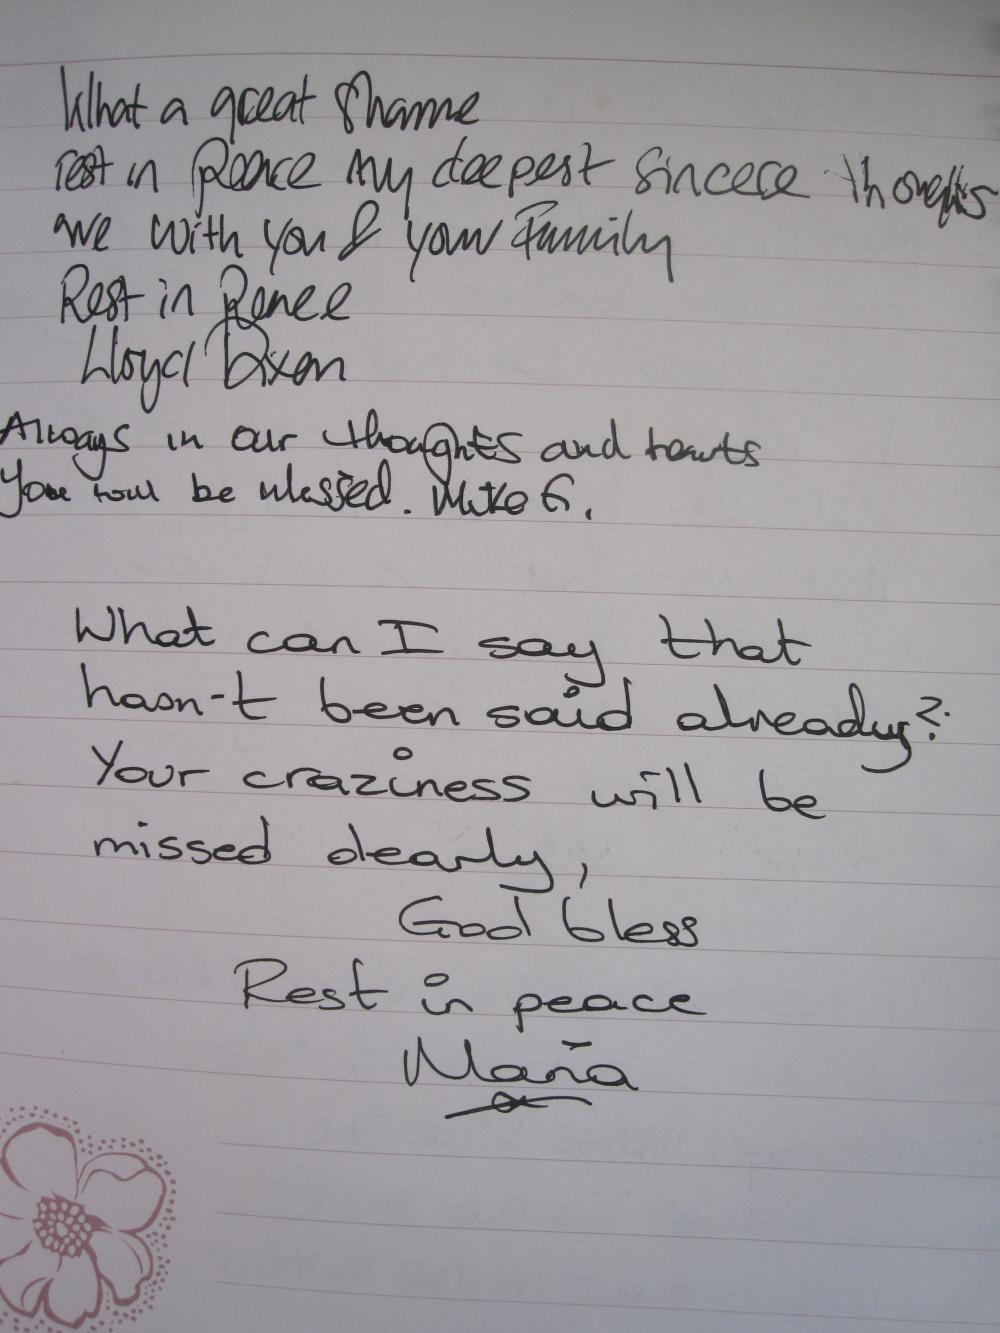 What a great Shame
rest in Peace My deepest Sincere thoughts
are with you & your Family
Rest in Peace
Lloyd Dixon
Always in our thoughts and hearts
You will be missed. Mike G.
What can I say that
hasn-t been said already?
Your craziness will be
missed dearly,
God bless
Rest in peace
Maria